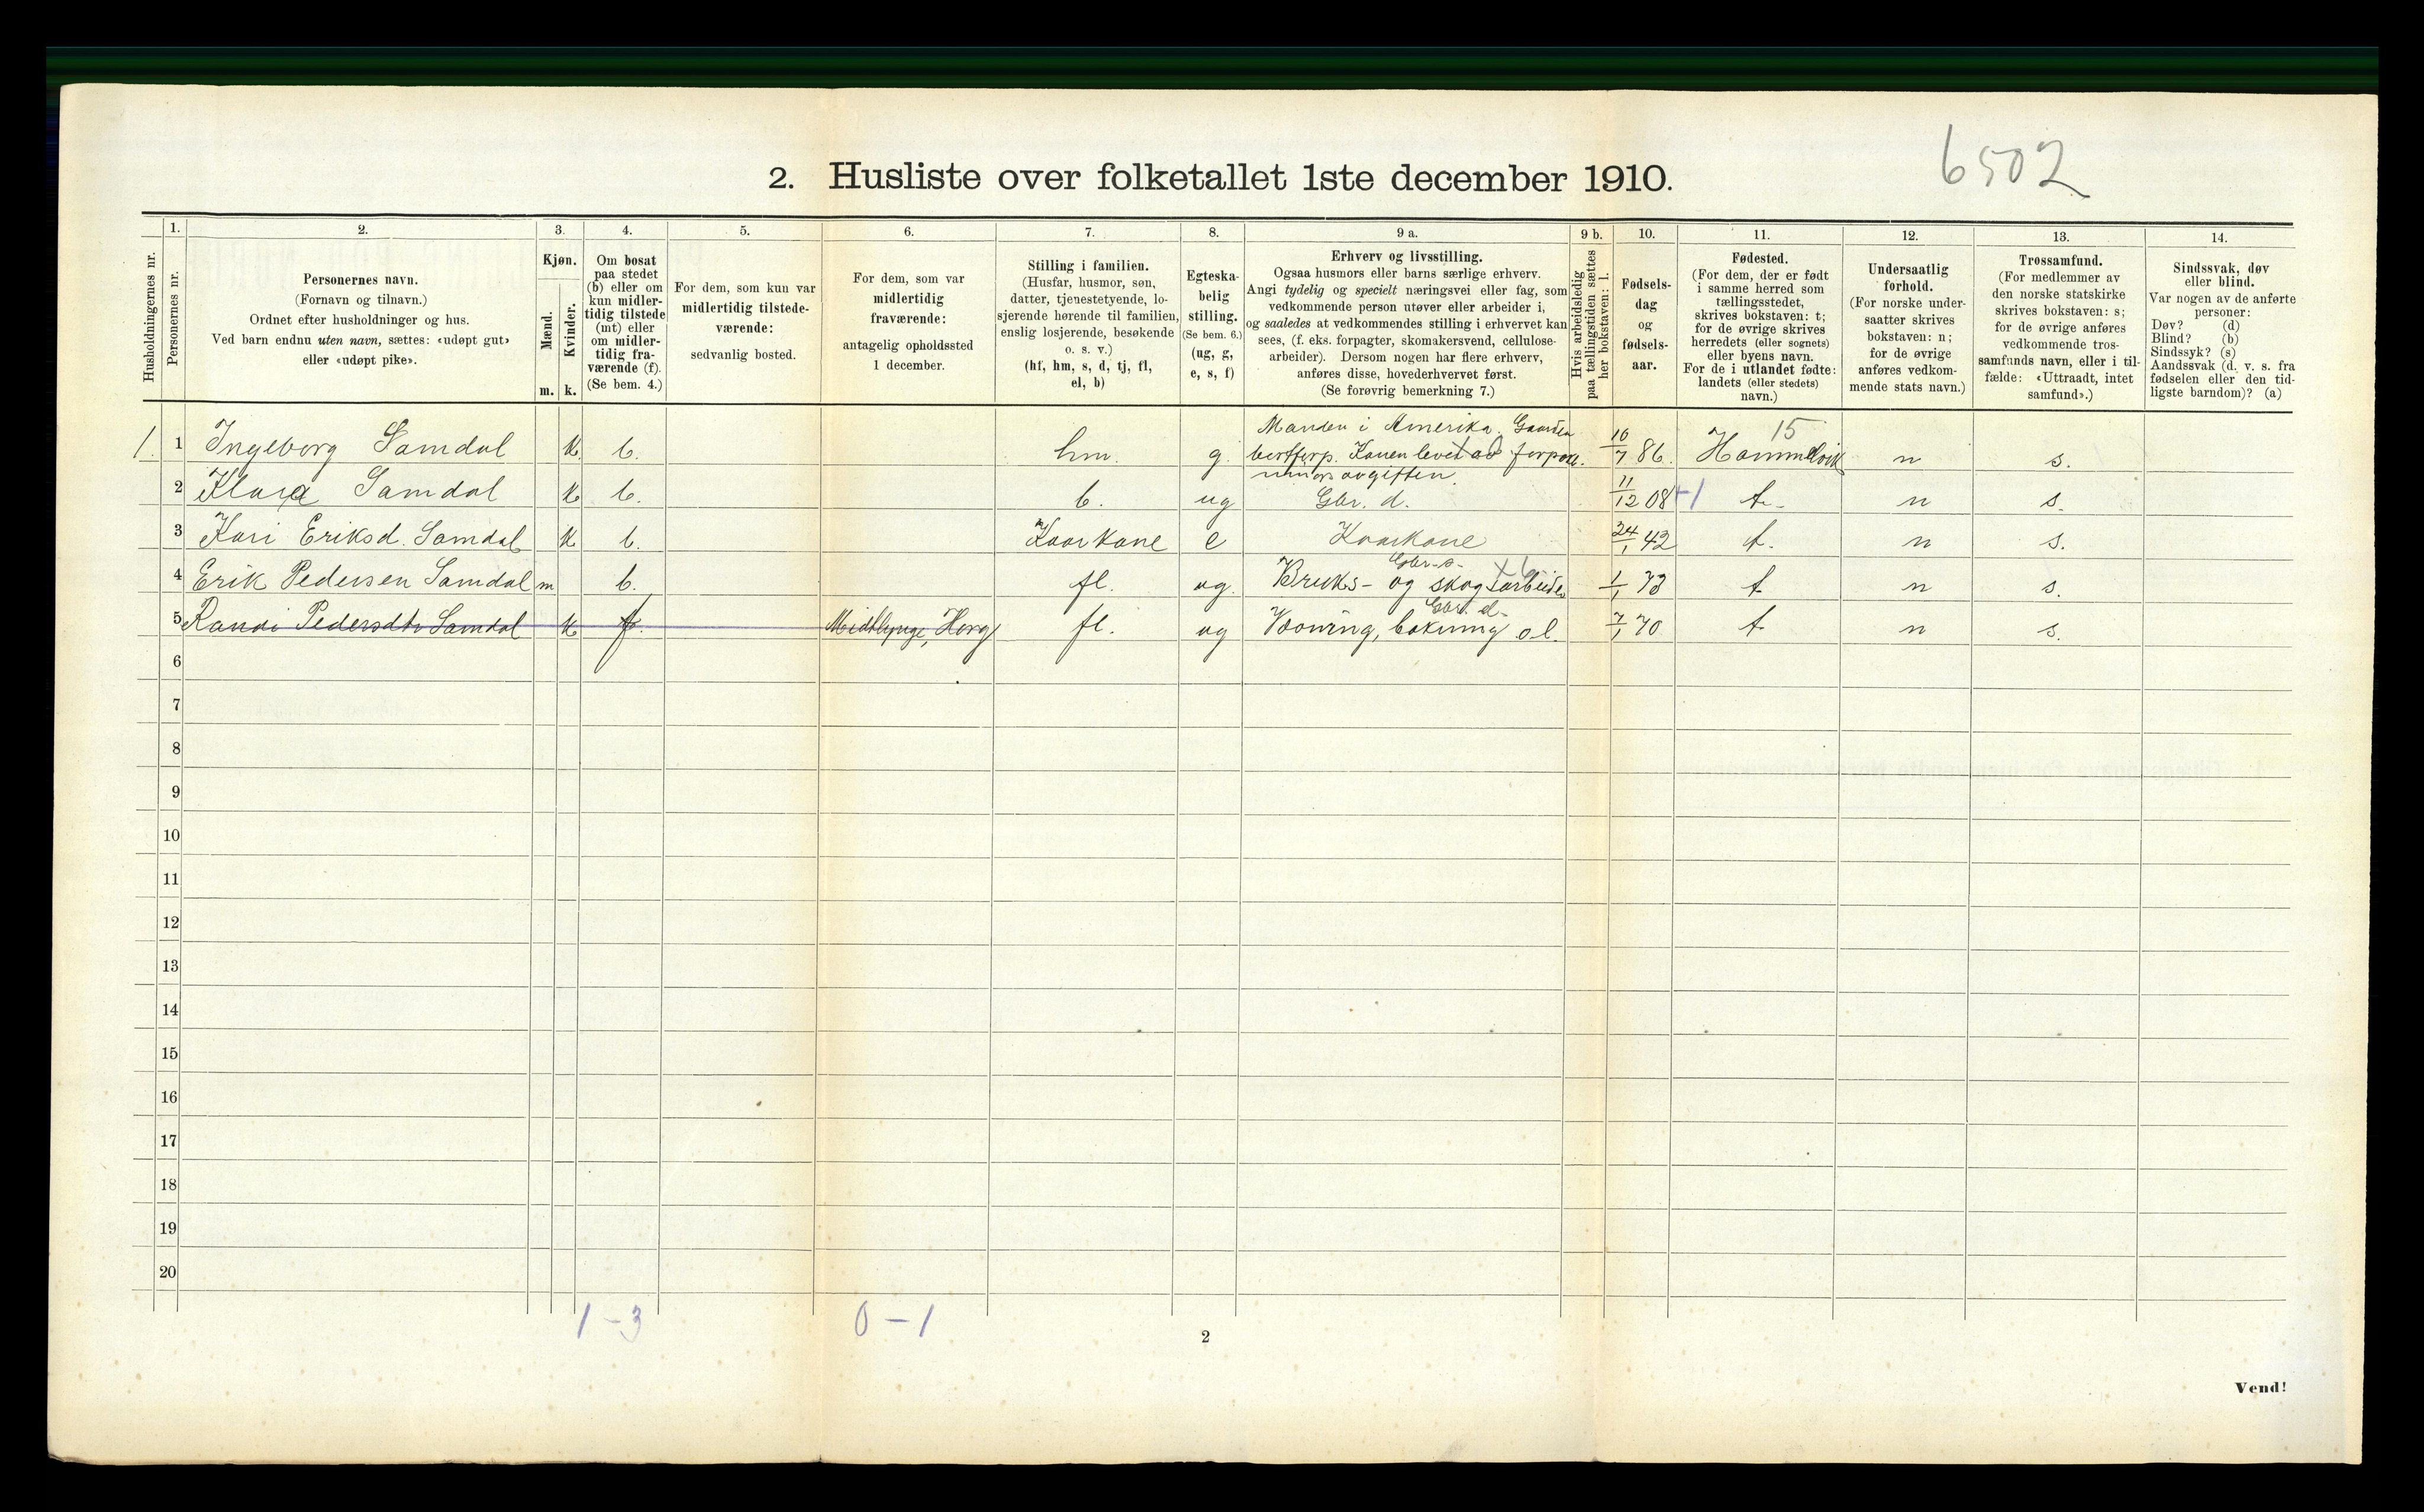 6502
2. Husliste over folketallet 1ste december 1910.
Husholdningernes nr.
1.
Personernes nr.
2.
Personernes navn.
(Fornavn og tilnavn.)
Ordnet efter husholdninger og hus.
Ved barn endnu uten navn, sættes: «udøpt gut»
eller «udøpt pike».
3.
Kjøn.
Mænd.
Kvinder.
m. k.
4.
Om bosat
paa stedet
(b) eller om
kun midler-
tidig tilstede
(mt) eller
om midler-
tidig fra-
værende (f).
(Se bem. 4.)
5.
For dem, som kun var
midlertidig tilstede-
værende:
sedvanlig bosted.
6.
For dem, som var
midlertidig
fraværende:
antagelig opholdssted
1 december.
7.
Stilling i familien.
(Husfar, husmor, søn,
datter, tjenestetyende, lo-
sjerende hørende til familien,
enslig losjerende, besøkende
o. s. v.)
(hf, hm, s, d, tj, fl,
el, b)
8.
Egteska-
belig
stilling.
(Se bem. 6.)
(ug, g,
e, s, f)
9 a.
Erhverv og livsstilling.
Ogsaa husmors eller barns særlige erhverv.
Angi tydelig og specielt næringsvei eller fag, som
vedkommende person utøver eller arbeider i,
og saaledes at vedkommendes stilling i erhvervet kan
sees, (f. eks. forpagter, skomakersvend, cellulose-
arbeider). Dersom nogen har flere erhverv,
anføres disse, hovederhvervet først.
(Se forøvrig bemerkning 7.)
9 b.
Hvis arbeidsledig
paa tællingstiden sættes
her bokstaven: l.
10.
Fødsels-
dag
og
fødsels-
aar.
11.
Fødested.
(For dem, der er født
i samme herred som
tællingsstedet,
skrives bokstaven: t;
for de øvrige skrives
herredets (eller sognets)
eller byens navn.
For de i utlandet fødte:
landets (eller stedets)
navn.)
12.
Undersaatlig
forhold.
(For norske under-
saatter skrives
bokstaven: n;
for de øvrige
anføres vedkom-
mende stats navn.)
13.
Trossamfund.
(For medlemmer av
den norske statskirke
skrives bokstaven: s;
for de øvrige anføres
vedkommende tros-
samfunds navn, eller i til-
fælde: «Uttraadt, intet
samfund».)
14.
Sindssvak, døv
eller blind.
Var nogen av de anførte
personer:
Døv? (d)
Blind? (b)
Sindssyk? (s)
Aandssvak (d. v. s. fra
fødselen eller den tid-
ligste barndom)? (a)
Manden i Amerika. Gaarden 15
1. 1 Ingeborg Samdal k. b. hm. g. Konen levet av 10/7 86. n s.
avgiften.
2 Klara Samdal k b. b. ug Gbr. d. 11/12 08 +1 t. n s.
3 Kari Eriksd. Samdal k b. Kaarkone e Kaarkone 24/1 42 t. n s.
Gbr. s.
4 Erik Pedersen Samdal m b. fl. ug. Bruks- og skogsarbeider 1/1 73 t n s.
Gbr. d.
5 Randi Pedersdtr Samdal k f. Horg fl. ug Vævning, o.l. 7/1 70 t n s.
6
7
8
9
10
11
12
13
14
15
16
17
18
19
20
1 - 3 0 - 1
2
Vend!